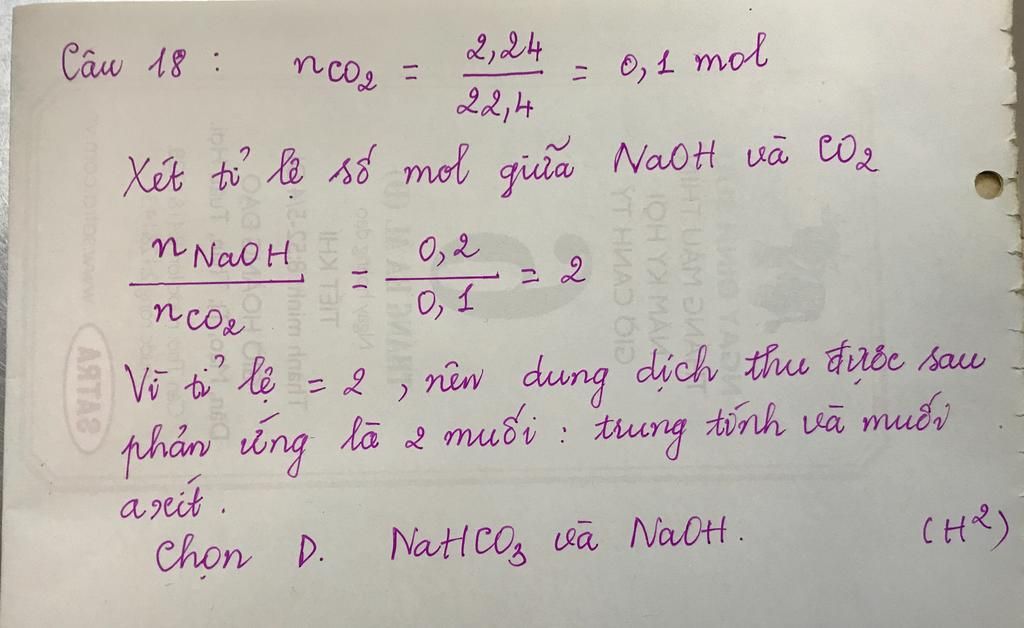 Câu 18 : nCO2 = 2,24 / 22,4 = 0,1 mol
Xét tỉ lệ số mol giữa NaOH và CO2
nNaOH / nCO2 = 0,2 / 0,1 = 2
Vì tỉ lệ = 2 , nên dung dịch thu được sau
phản ứng là 2 muối : trung tính và muối
axit .
Chọn D. NaHCO3 và NaOH. (H²)
SATRA